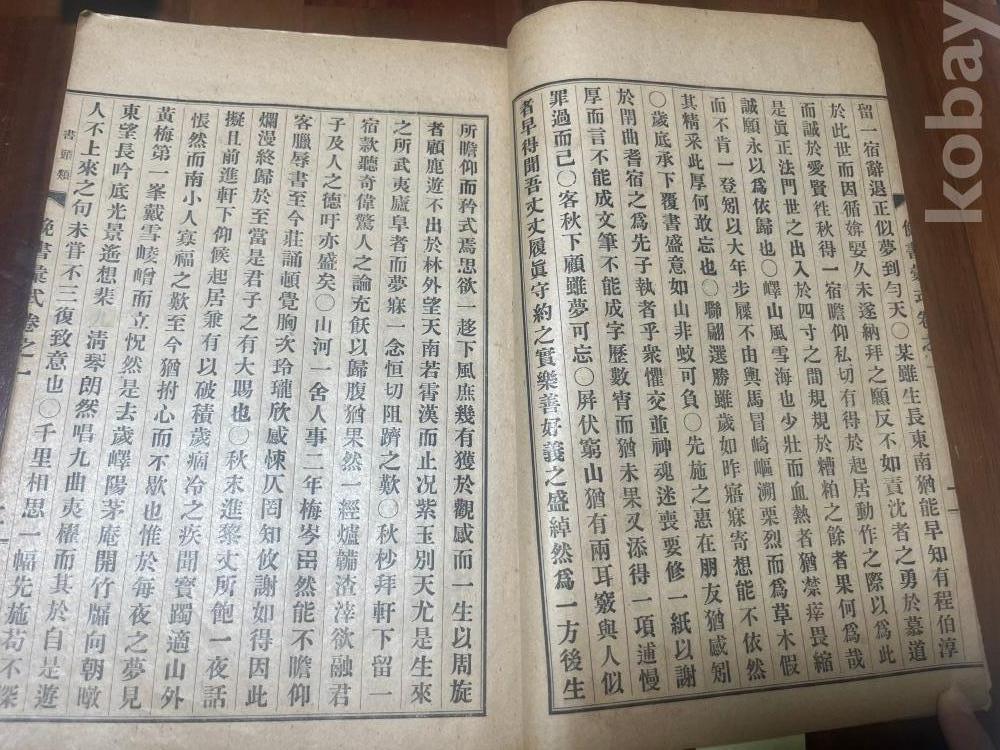 留一宿辭退正似夢到勻天○某雖生長東南猶能早知有程伯淳
於此世而因循媕娿久未遂納拜之願反不如責沈者之勇於慕道
而誠於愛賢徃秋得一宿瞻仰私切有得於起居動作之際以爲此
是眞正法門世之出入於四寸之間規規於糟粕之餘者果何爲哉
誠願永以爲依歸也○嶧山風雪海也少壯而血熱者猶禁瘁畏縮
而不肯一登矧以大年步屧不由輿馬冒崎嶇溯栗烈而爲草木假
其精采此厚何敢忘也○聯翩選勝雖歲如昨寤寐寄想能不依然
○歲底承下覆書盛意如山非蚊可負○先施之惠在朋友猶感矧
於閈曲耆宿之爲先子執者乎衆懼交並神魂迷喪要修一紙以謝
厚而言不能成文筆不能成字歷數宵而猶未果又添得一項逋慢
罪過而已○客秋下顧雖夢可忘○屛伏窮山猶有兩耳竅與人似
者早得聞吾丈丈履眞守約之實樂善好義之盛綽然爲一方後生
所瞻仰而矜式焉思欲一趍下風庶幾有獲於觀感而一生以周旋
者顧鹿遊不出於林外望天南若霄漢而止况紫玉別天尤是生來
之所武夷廬阜者而夢寐一念恒切阻躋之歎○秋杪拜軒下留一
宿款聽奇偉驚人之論充飫以歸腹猶果然一經爐韛渣滓欲融君
子及人之德吁亦盛矣○山河一舍人事二年梅岑𦊆然能不瞻仰
客臘辱書至今莊誦頓覺胸次玲瓏欣感悚仄罔知攸謝如得因此
爛漫終歸於至當是君子之有大賜也○秋末進黎丈所飽一夜話
擬且前進軒下仰候起居兼有以破積歲痼冷之疾聞寳躅適山外
悵然而南小人寡福之歎至今猶拊心而不歇也惟於每夜之夢見
黃梅第一峯戴雪崚嶒而立怳然是去歲嶧陽茅庵開竹牖向朝暾
東望長吟底光景遙想棐几淸琴朗然唱九曲夷櫂而其於自是遊
人不上來之句未甞不三復致意也○千里相思一幅先施苟不深
書頭類
晚書彙式卷之一